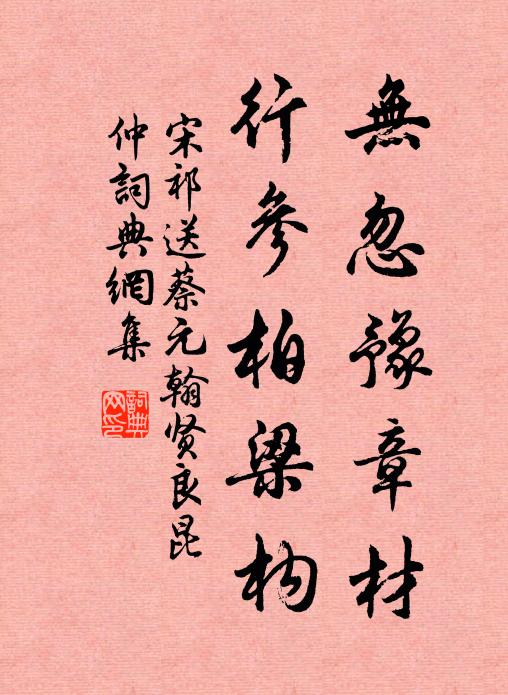 無忽豫章材
行參柏梁构
宋祁送蔡元翰贤良昆
仲詞典網集
詞典
网印